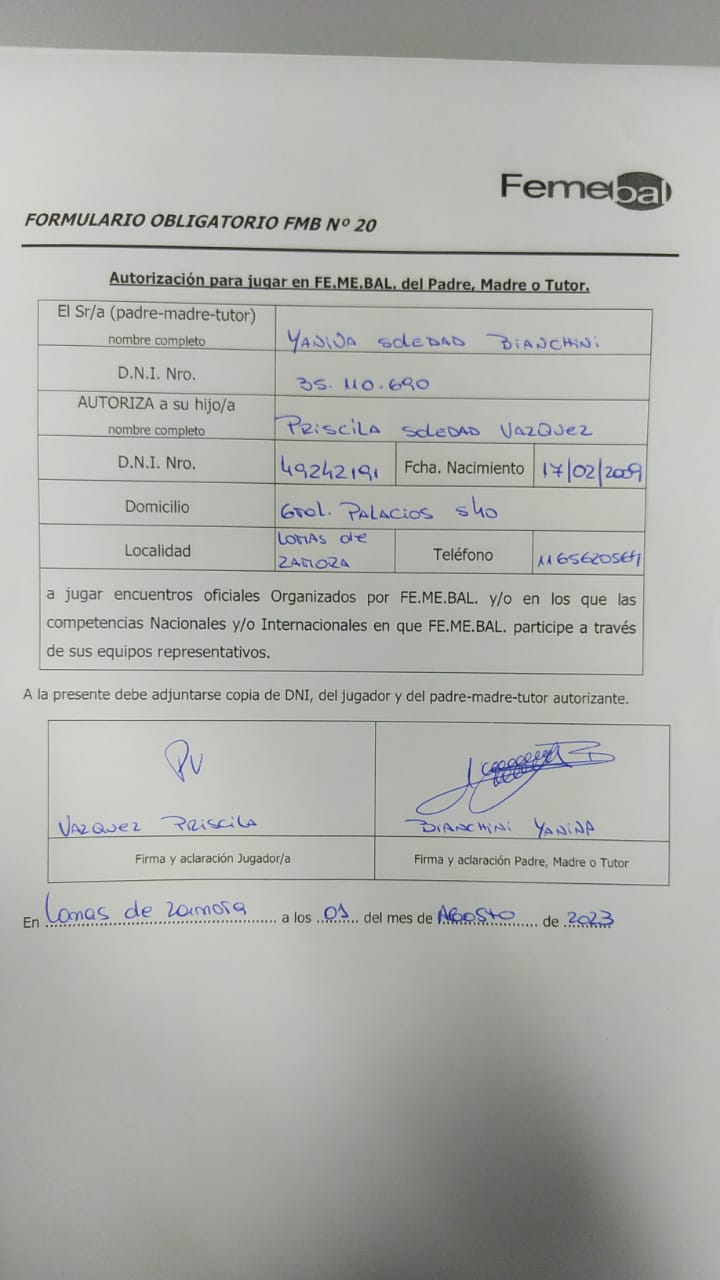 Femebal
FORMULARIO OBLIGATORIO FMB Nº 20
Autorización para jugar en FE.ME.BAL. del Padre, Madre o Tutor.
El Sr/a (padre-madre-tutor)
nombre completo
YANINA SOLEDAD BIANCHINI
D.N.I. Nro.
35.110.690
AUTORIZA a su hijo/a
nombre completo
PRISCILA SOLEDAD VAZQUEZ
D.N.I. Nro.
49242191
Fcha. Nacimiento
17/02/2009
Domicilio
Gral. PALACIOS 540
Localidad
LOMAS de
ZAMORA
Teléfono
a jugar encuentros oficiales Organizados por FE.ME.BAL. y/o en los que las
competencias Nacionales y/o Internacionales en que FE.ME.BAL. participe a través
de sus equipos representativos.
A la presente debe adjuntarse copia de DNI, del jugador y del padre-madre-tutor autorizante.
PV
VAZQUEZ PRISCILA
BIANCHINI YANINA
Firma y aclaración Jugador/a
Firma y aclaración Padre, Madre o Tutor
En Lomas de Zamora a los 01 del mes de AGOSTO de 2023